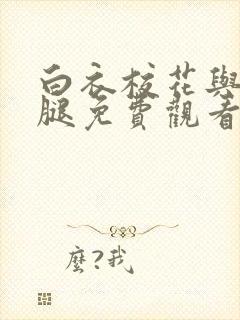 白衣校花與
腿免費觀看
麼?我